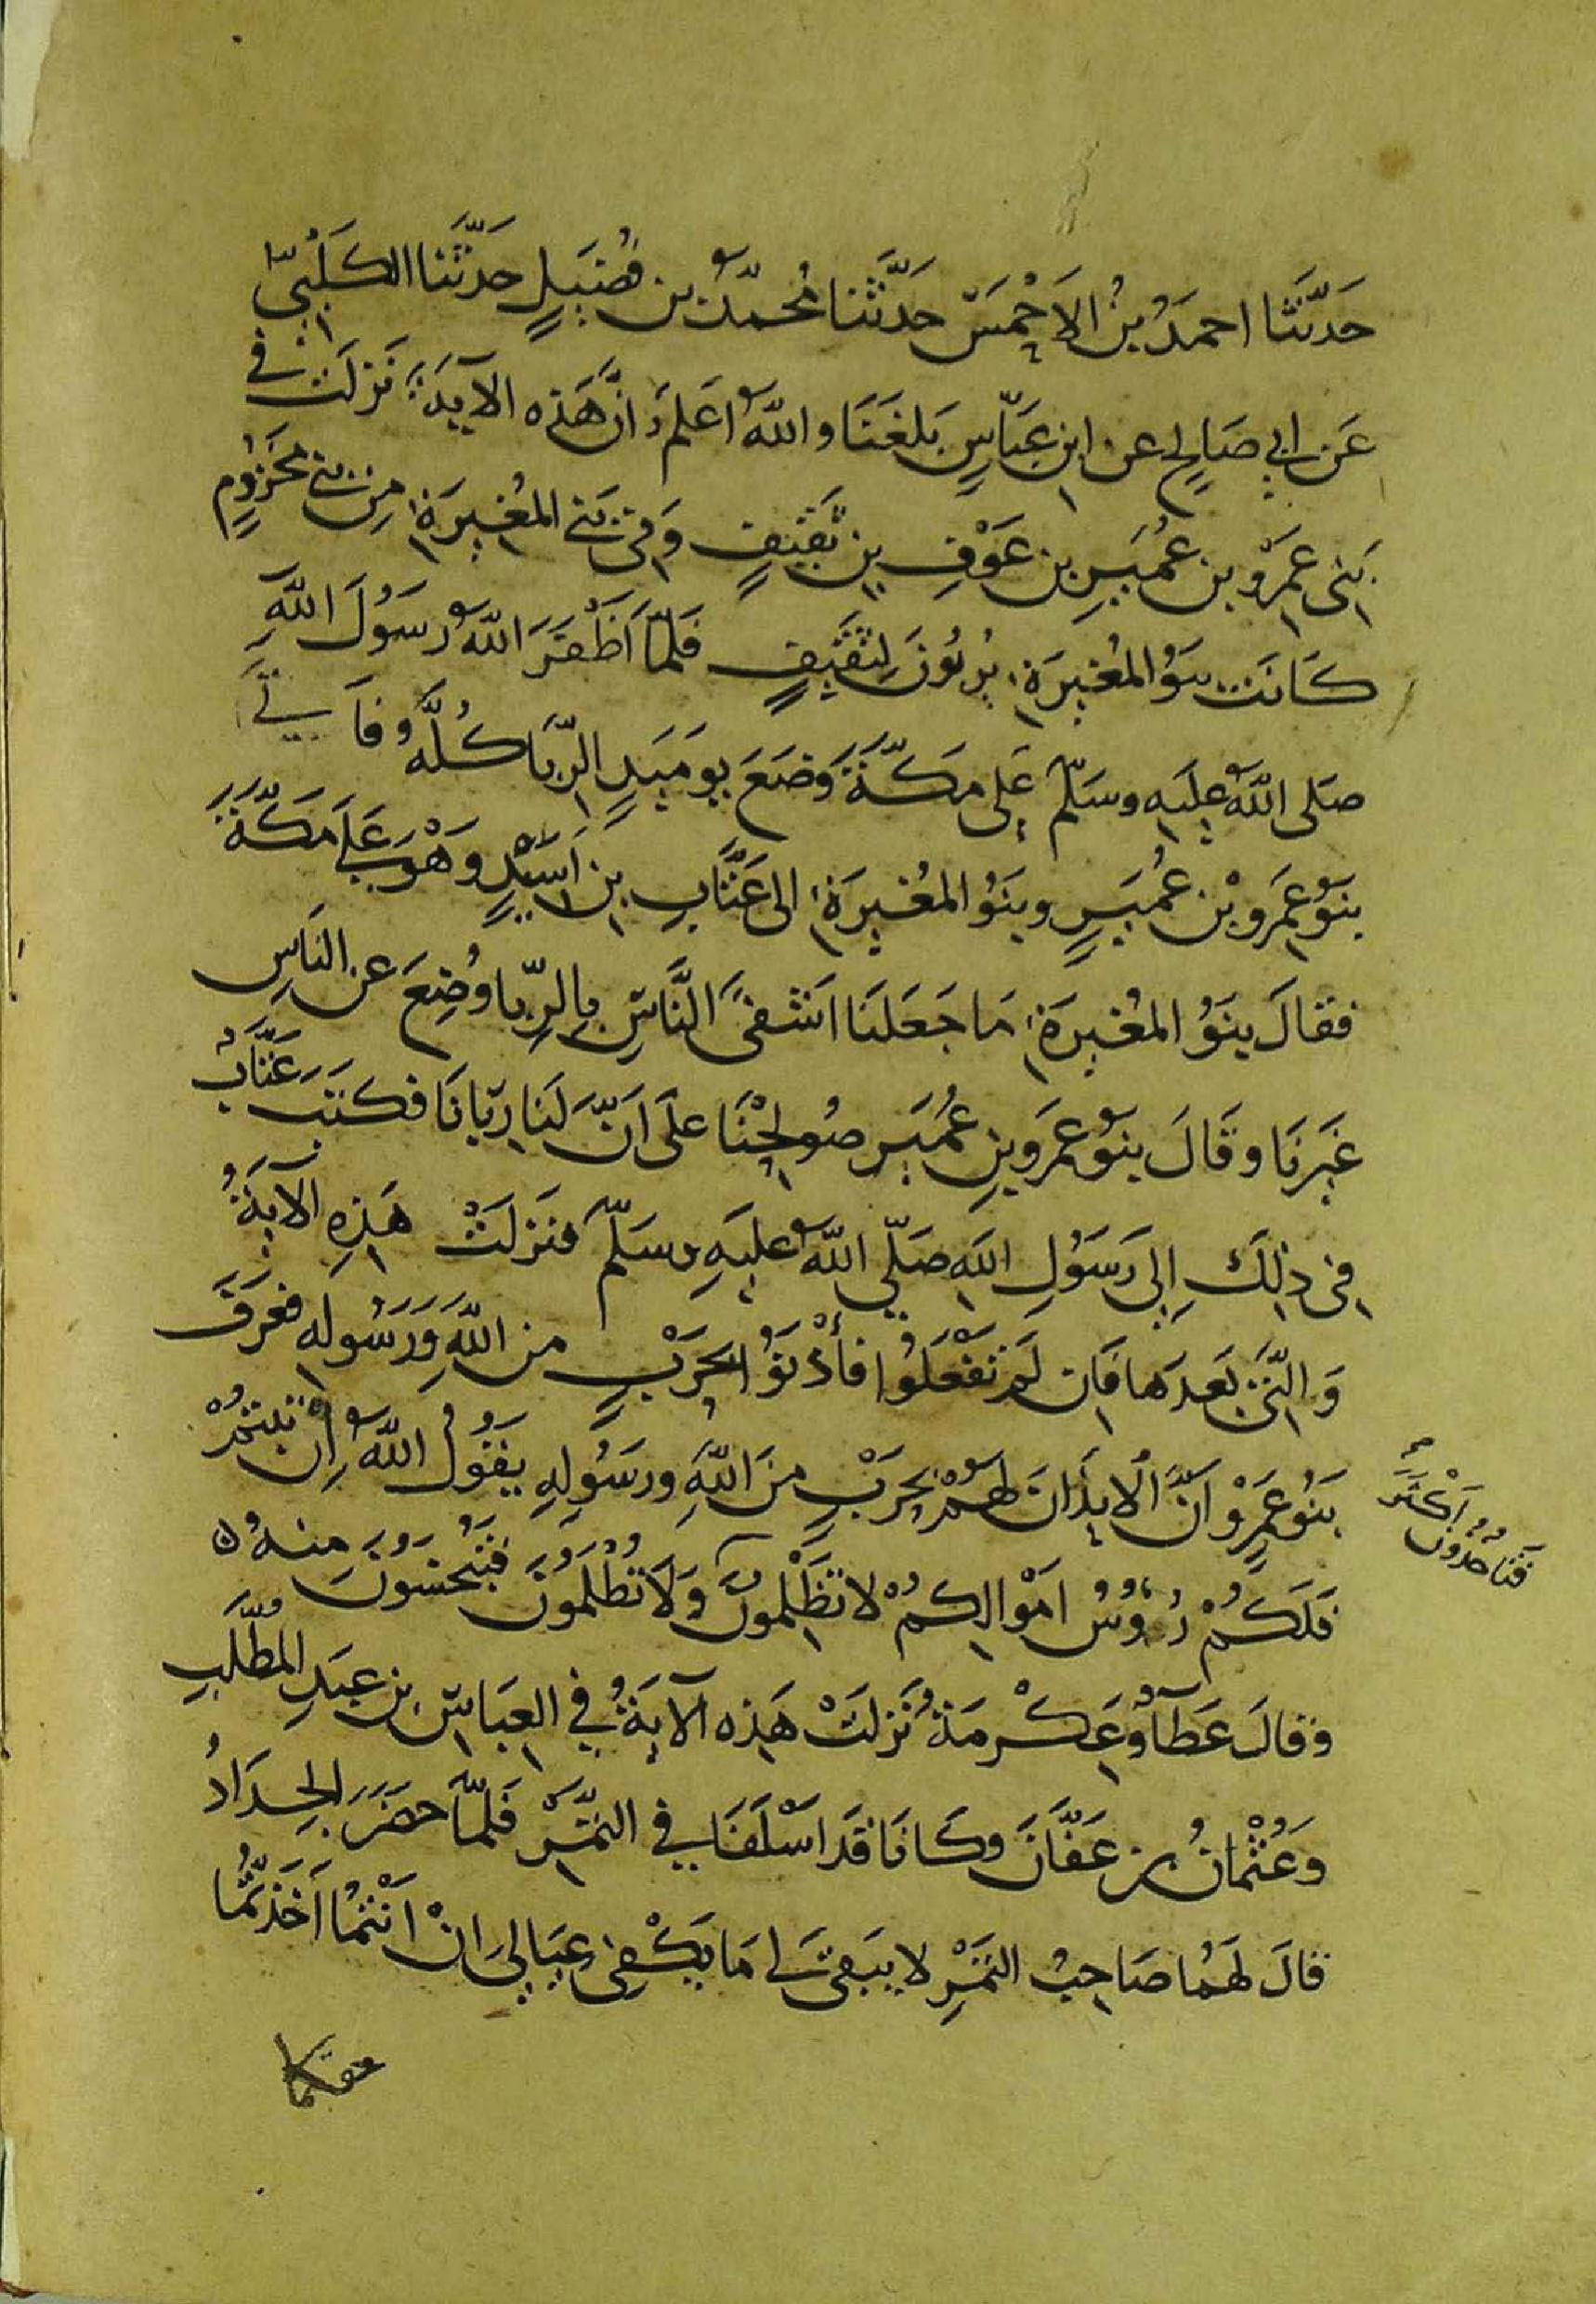 حَدَّثَنَا احمَدُ بنُ الاَحْمَسِ حَدَّثَنا مُحمّدُ بن فُضَيلٍ حَدَّثَنا الكَلْبِيّ
عَن ابي صَالِحٍ عن ابن عَبّاسٍ بَلغَنَا واللهُ اَعلَمُ اَنَّ هَذِه الآيَةَ نَزلَت في
بَنى عَمرِو بن عُمَيرِ بن عَوْفِ بن ثَقِيفٍ وَفى بَني المُغِيرَةِ مِن بَني مخَزُومٍ
كَانَت بنَوُ المُغِيرَةِ يُربُونَ لِثَقِيفٍ فَلمّا اَظْهَرَ اللهُ رَسُولَ اللهِ
صَلى اللهُ عليَهِ وسَلّم عَلى مَكّةَ وَضعَ يومَيِذٍ الرِّبَا كُلَّهُ فأتَي
بنَوُ عَمرِو بْن عُمَيرٍ وبنَوُ المغُيرَةِ الى عَتَّابِ بن اَسِيْدٍ وَهُوَ عَلَى مَكّةَ
فقالَ بنَوُ المُغِيرَةِ مَا جَعَلَنَا اَشقىَ النَّاسِ بِالرِّبا وُضِعَ عن النَاسِ
غَيرِنَا وقَالَ بنوُ عَمَرِو بنِ عُمَيرٍ صُولِحْنَا عَلى اَنَّ لَنَا رِبَانَا فكَتَبَ عَتَّابُ
فِى ذلِكَ إِلى رَسَوُلِ اللَهِ صَلّي اللهُ عليَهِ وسَلّم فنَزلَتْ هَذِهِ الآيَةُ
وَالتَّى بَعدَها فَاِن لَم تَفْعَلُوا فأذَنوُا بِحَرْبٍ من اللهِ وَرَسُولِه فعَرَفَ
بَنَوُ عَمرٍو اَنّ الاِيذَانَ لهُمْ بِحَربٍ مِنَ اللهِ ورسَوُلِهِ يقَوُلُ اللهُ اِنْ تُبتُمْ
فَلَكُمْ رُءُوسُ امَوْالِكُمْ لا تَظْلِمُونَ وَلَا تُظْلَمُونَ فَتُبْخَسُونَ مِنهُ ه
فَتَأخُذُونَ اَكْثَرَ
وقالَ عَطَآءُ وعِكْرمَةُ نَزلَتْ هَذِه الآيَةُ فِي العبَاسّ بن عبَدِ المُطَّلَبِ
وَعُثْمانُ بن عَفّانَ وكَانَا قَد اَسْلَفَا فِي التمّرْ فَلمّاَ حضَرَ الجِدَادُ
قالَ لَهُمَا صَاحِبُ التمَرِْ لا يبَقىَ لي مَا يَكْفِى عِيَالِى اِنْ اَنتُمَا اَخَذتمُا